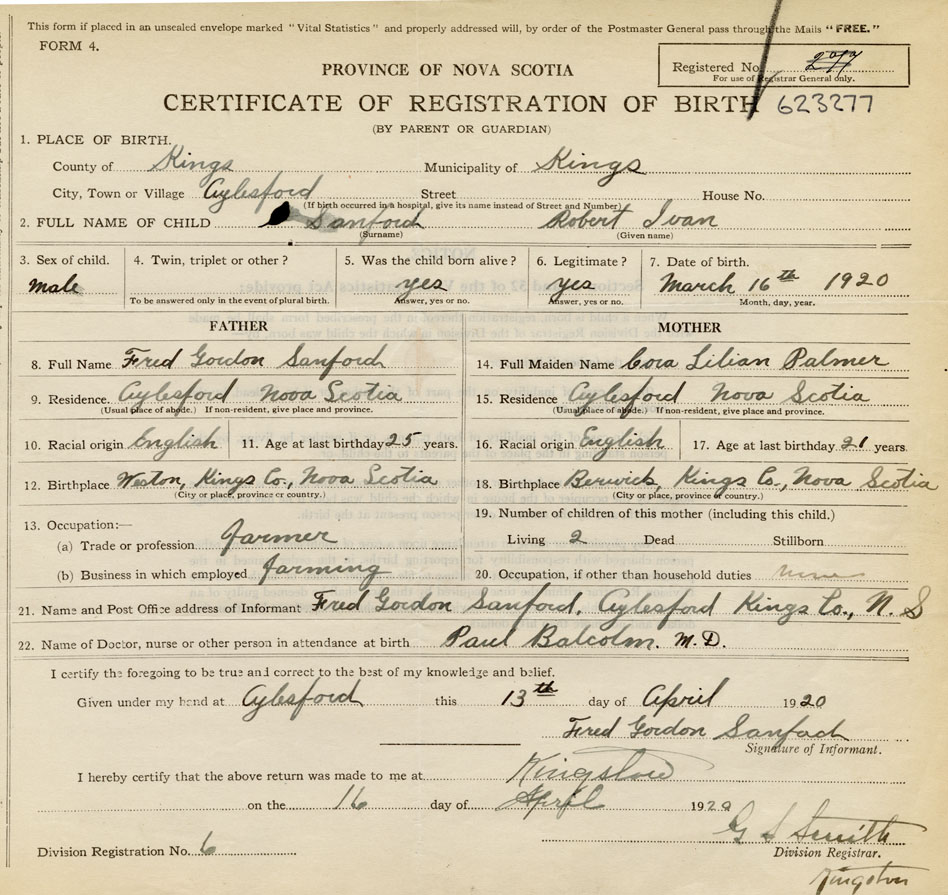 This form if placed in an unsealed envelope marked "Vital Statistics" and properly addressed will, by order of the Postmaster General pass through the Mails "FREE."
FORM 4.
Registered No. 277
For use of Registrar General only.
PROVINCE OF NOVA SCOTIA
CERTIFICATE OF REGISTRATION OF BIRTH 623277
(BY PARENT OR GUARDIAN)
1. PLACE OF BIRTH.
County of Kings Municipality of Kings
City, Town or Village Aylesford Street House No.
(If birth occurred in a hospital, give its name instead of Street and Number)
2. FULL NAME OF CHILD Sanford Robert Ivan
(Surname) (Given name)
3. Sex of child. 4. Twin, triplet or other? 5. Was the child born alive? 6. Legitimate? 7. Date of birth.
male yes yes March 16th 1920
To be answered only in the event of plural birth. Answer, yes or no. Answer, yes or no. Month, day, year.
FATHER MOTHER
8. Full Name Fred Gordon Sanford 14. Full Maiden Name Cora Lilian Palmer
9. Residence. Aylesford Nova Scotia 15. Residence Aylesford Nova Scotia
(Usual place of abode.) If non-resident, give place and province. (Usual place of abode.) If non-resident, give place and province.
10. Racial origin English 11. Age at last birthday 25 years. 16. Racial origin English 17. Age at last birthday 21 years.
12. Birthplace Weston, Kings Co., Nova Scotia 18. Birthplace Berwick, Kings Co., Nova Scotia
(City or place, province or country.) (City or place, province or country.)
13. Occupation:— 19. Number of children of this mother (including this child.)
(a) Trade or profession farmer Living 2 Dead Stillborn
(b) Business in which employed farming 20. Occupation, if other than household duties none
21. Name and Post Office address of Informant Fred Gordon Sanford, Aylesford Kings Co., N. S
22. Name of Doctor, nurse or other person in attendance at birth Paul Balcolm. M.D.
I certify the foregoing to be true and correct to the best of my knowledge and belief.
Given under my hand at Aylesford this 13th day of April 1920
Fred Gordon Sanford
Signature of Informant.
I hereby certify that the above return was made to me at Kingston
on the 16 day of April 1920
G S Smith
Division Registration No. 6 Division Registrar.
Kingston